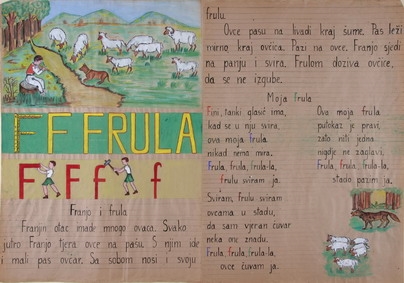 F F FRULA
F F f f
Franjo i frula
Franjin otac imade mnogo ovaca. Svako
jutro Franjo tjera ovce na pašu. S njim ide
i mali pas ovčar. Sa sobom nosi i svoju
frulu.
Ovce pasu na livadi kraj šume. Pas leži
mirno kraj ovčica. Pazi na ovce. Franjo sjedi
na panju i svira. Frulom doziva ovčice,
da se ne izgube.
Moja frula
Fini, tanki glasić ima,
kad se u nju svira,
ova moja frula
nikad nema mira.
Frula, frula, frula-la,
frulu sviram ja.
Sviram, frulu sviram
ovcama u stadu,
da sam vjeran čuvar
neka one znadu.
Frula, frula, frula-la,
ovce čuvam ja.
Ova moja frula
putokaz je pravi,
zato niti jedna
nigdje ne zaglavi.
Frula, frula, frula-la,
stado pazim ja.